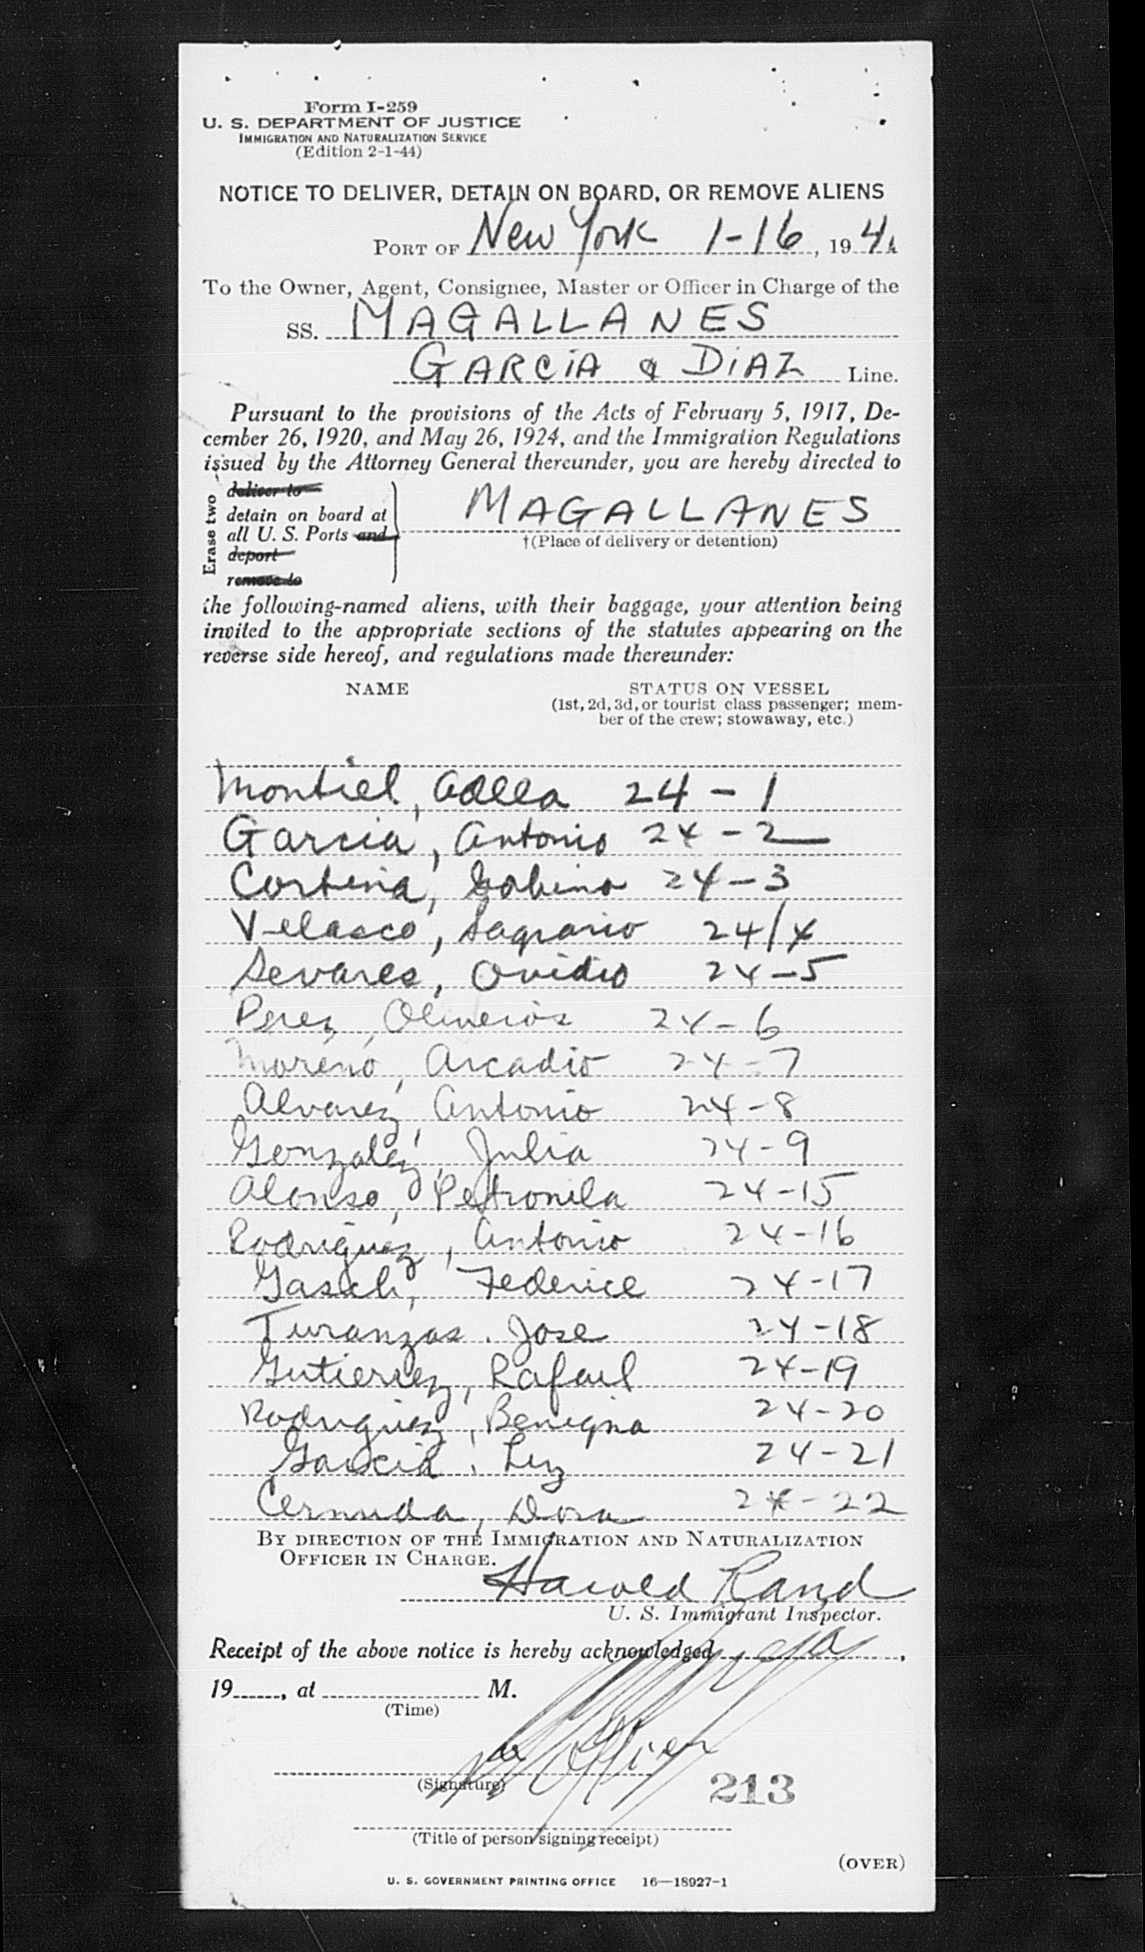 Form I-259
U. S. DEPARTMENT OF JUSTICE
IMMIGRATION AND NATURALIZATION SERVICE
(Edition 2-1-44)
NOTICE TO DELIVER, DETAIN ON BOARD, OR REMOVE ALIENS
PORT OF New York 1-16, 194
To the Owner, Agent, Consignee, Master or Officer in Charge of the
SS. MAGALLANES
GARCIA & DIAZ Line.
Pursuant to the provisions of the Acts of February 5, 1917, De-
cember 26, 1920, and May 26, 1924, and the Immigration Regulations
issued by the Attorney General thereunder, you are hereby directed to
Erase two
deliver to
detain on board at
all U. S. Ports and
deport
remove to
MAGALLANES
†(Place of delivery or detention)
the following-named aliens, with their baggage, your attention being
invited to the appropriate sections of the statutes appearing on the
reverse side hereof, and regulations made thereunder:
NAME STATUS ON VESSEL
(1st, 2d, 3d, or tourist class passenger; mem-
ber of the crew; stowaway, etc.)
Montiel, Adela 24-1
Garcia, Antonio 24-2
Cortina, Gabino 24-3
Velasco, Sagrario 24/4
Sevares, Ovidio 24-5
Perez, 24-6
Moreno, Arcadio 24-7
Alvarez, Antonio 24-8
Gonzalez, Julia 24-9
Alonso, Petronila 24-15
Rodriguez, Antonio 24-16
Gasch, Federice 24-17
Turanzas, Jose 24-18
Gutierrez, Rafael 24-19
Rodriguez, Benigna 24-20
Garcia, Luz 24-21
Cernuda, Dora 24-22
BY DIRECTION OF THE IMMIGRATION AND NATURALIZATION
OFFICER IN CHARGE.
Harold Rand
U. S. Immigrant Inspector.
Receipt of the above notice is hereby acknowledged
19, at M.
(Time)
Officer
(Signature)
213
(Title of person signing receipt)
(OVER)
U. S. GOVERNMENT PRINTING OFFICE 16—18927-1